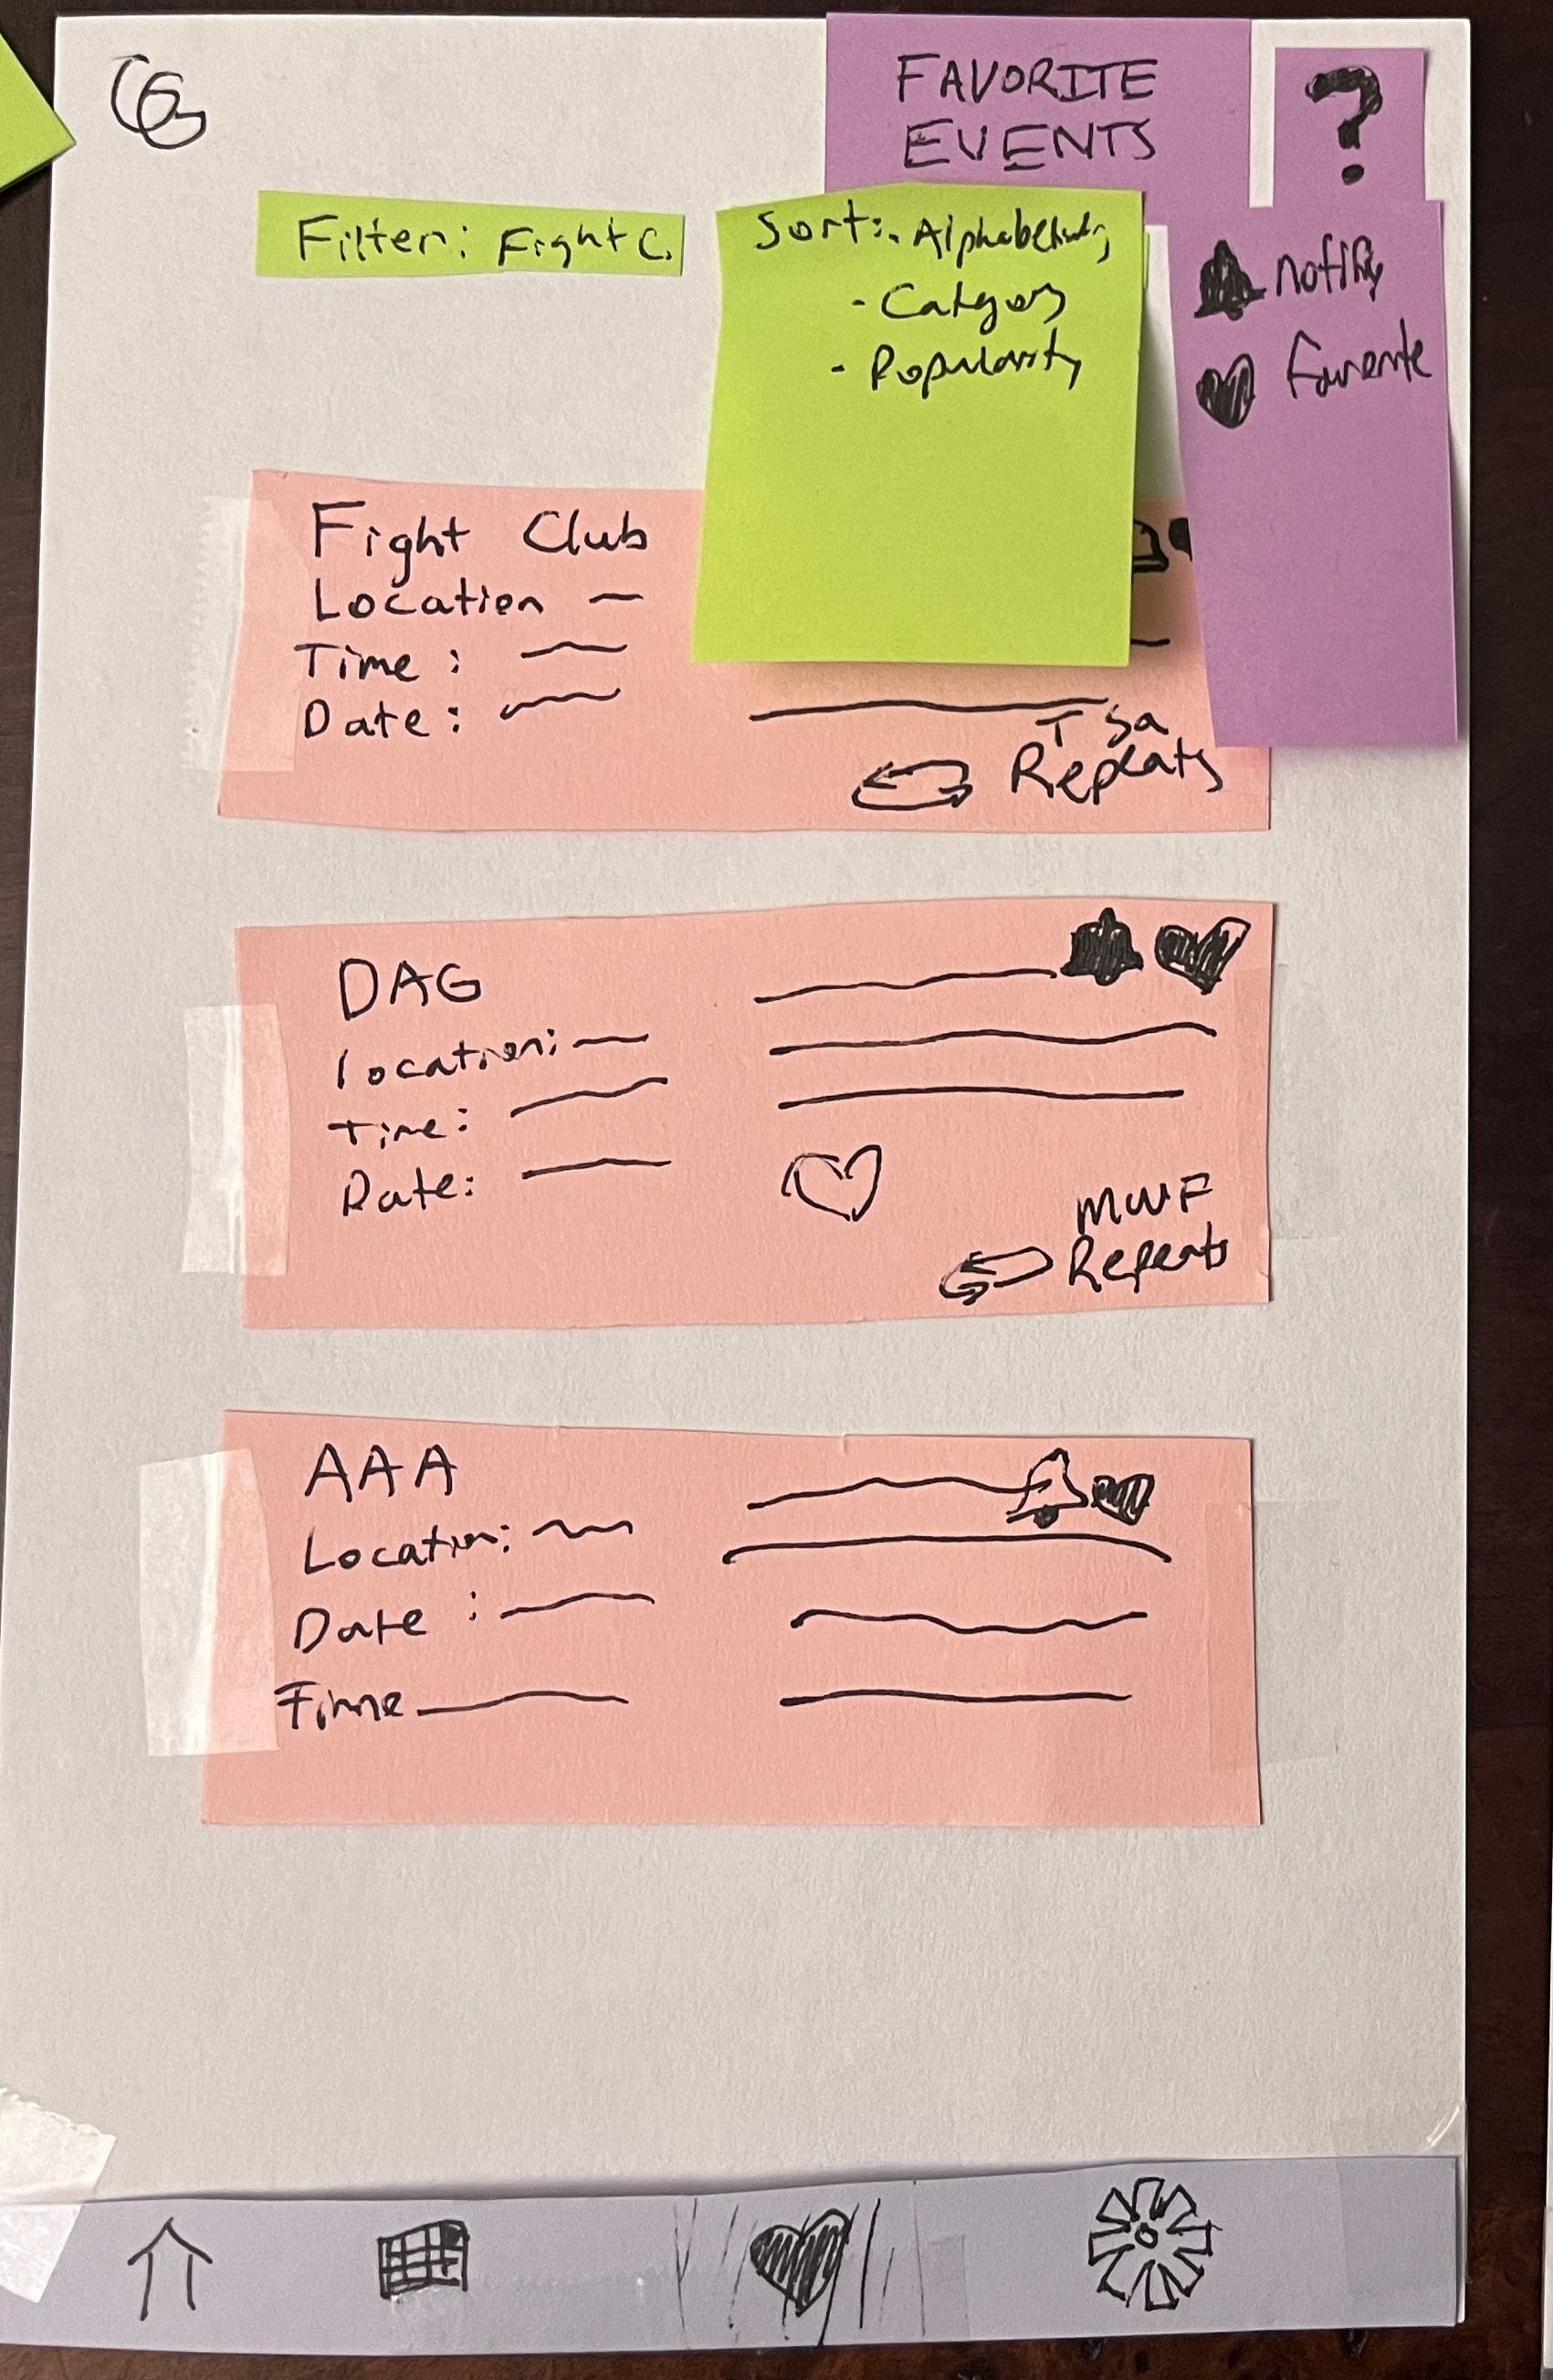 CG
FAVORITE
EVENTS
?
Filter: Fight C.
Sort: - Alphabetically
- Category
- Popularity
notify
Favorite
Fight Club
Location
Time :
Date :
T Sa
Repeats
DAG
Location:
Time:
Date:
MWF
Repeats
AAA
Location:
Date :
Time